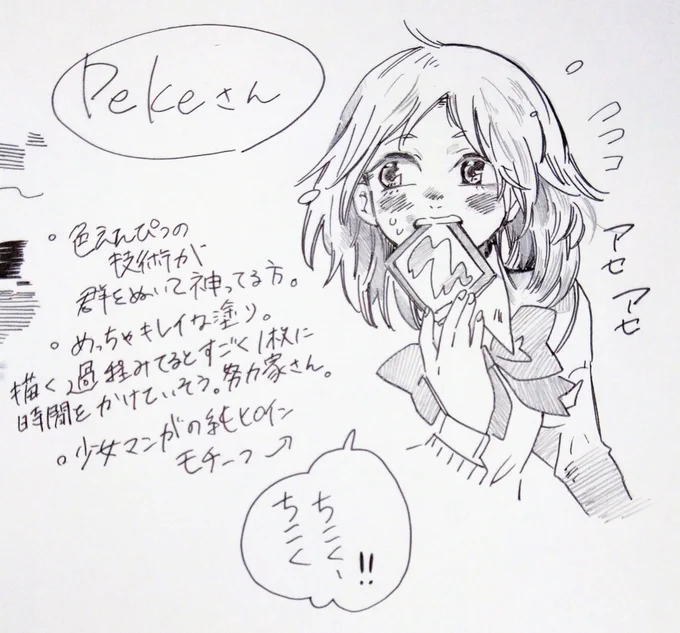 Pekeさん
。色えんぴつの
技術が
群をぬいて神ってる方。
。めっちゃキレイな塗り。
描く過程みてるとすごく1枚に
時間をかけていそう。努力家さん。
。少女マンガの純ヒロイン
モチーフ→
アセ
アセ
ちこく、
ちこく
!!